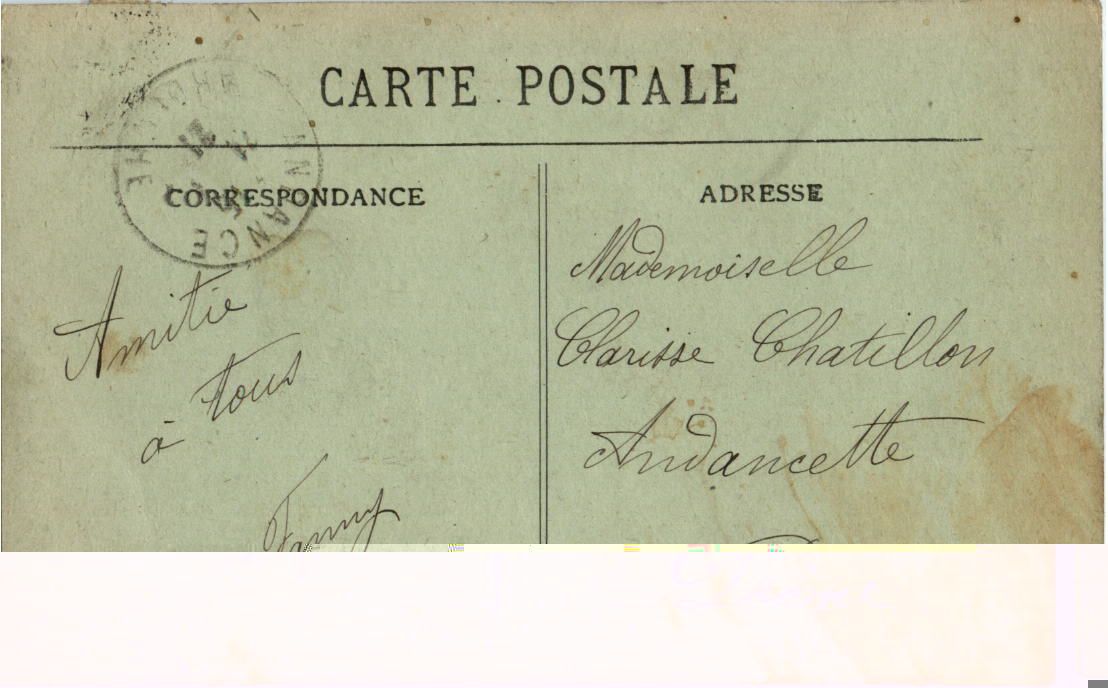 CARTE POSTALE
CORRESPONDANCE
ADRESSE
Amitié
à tous
Fanny
Mademoiselle
Clarisse Chatillon
Andancette